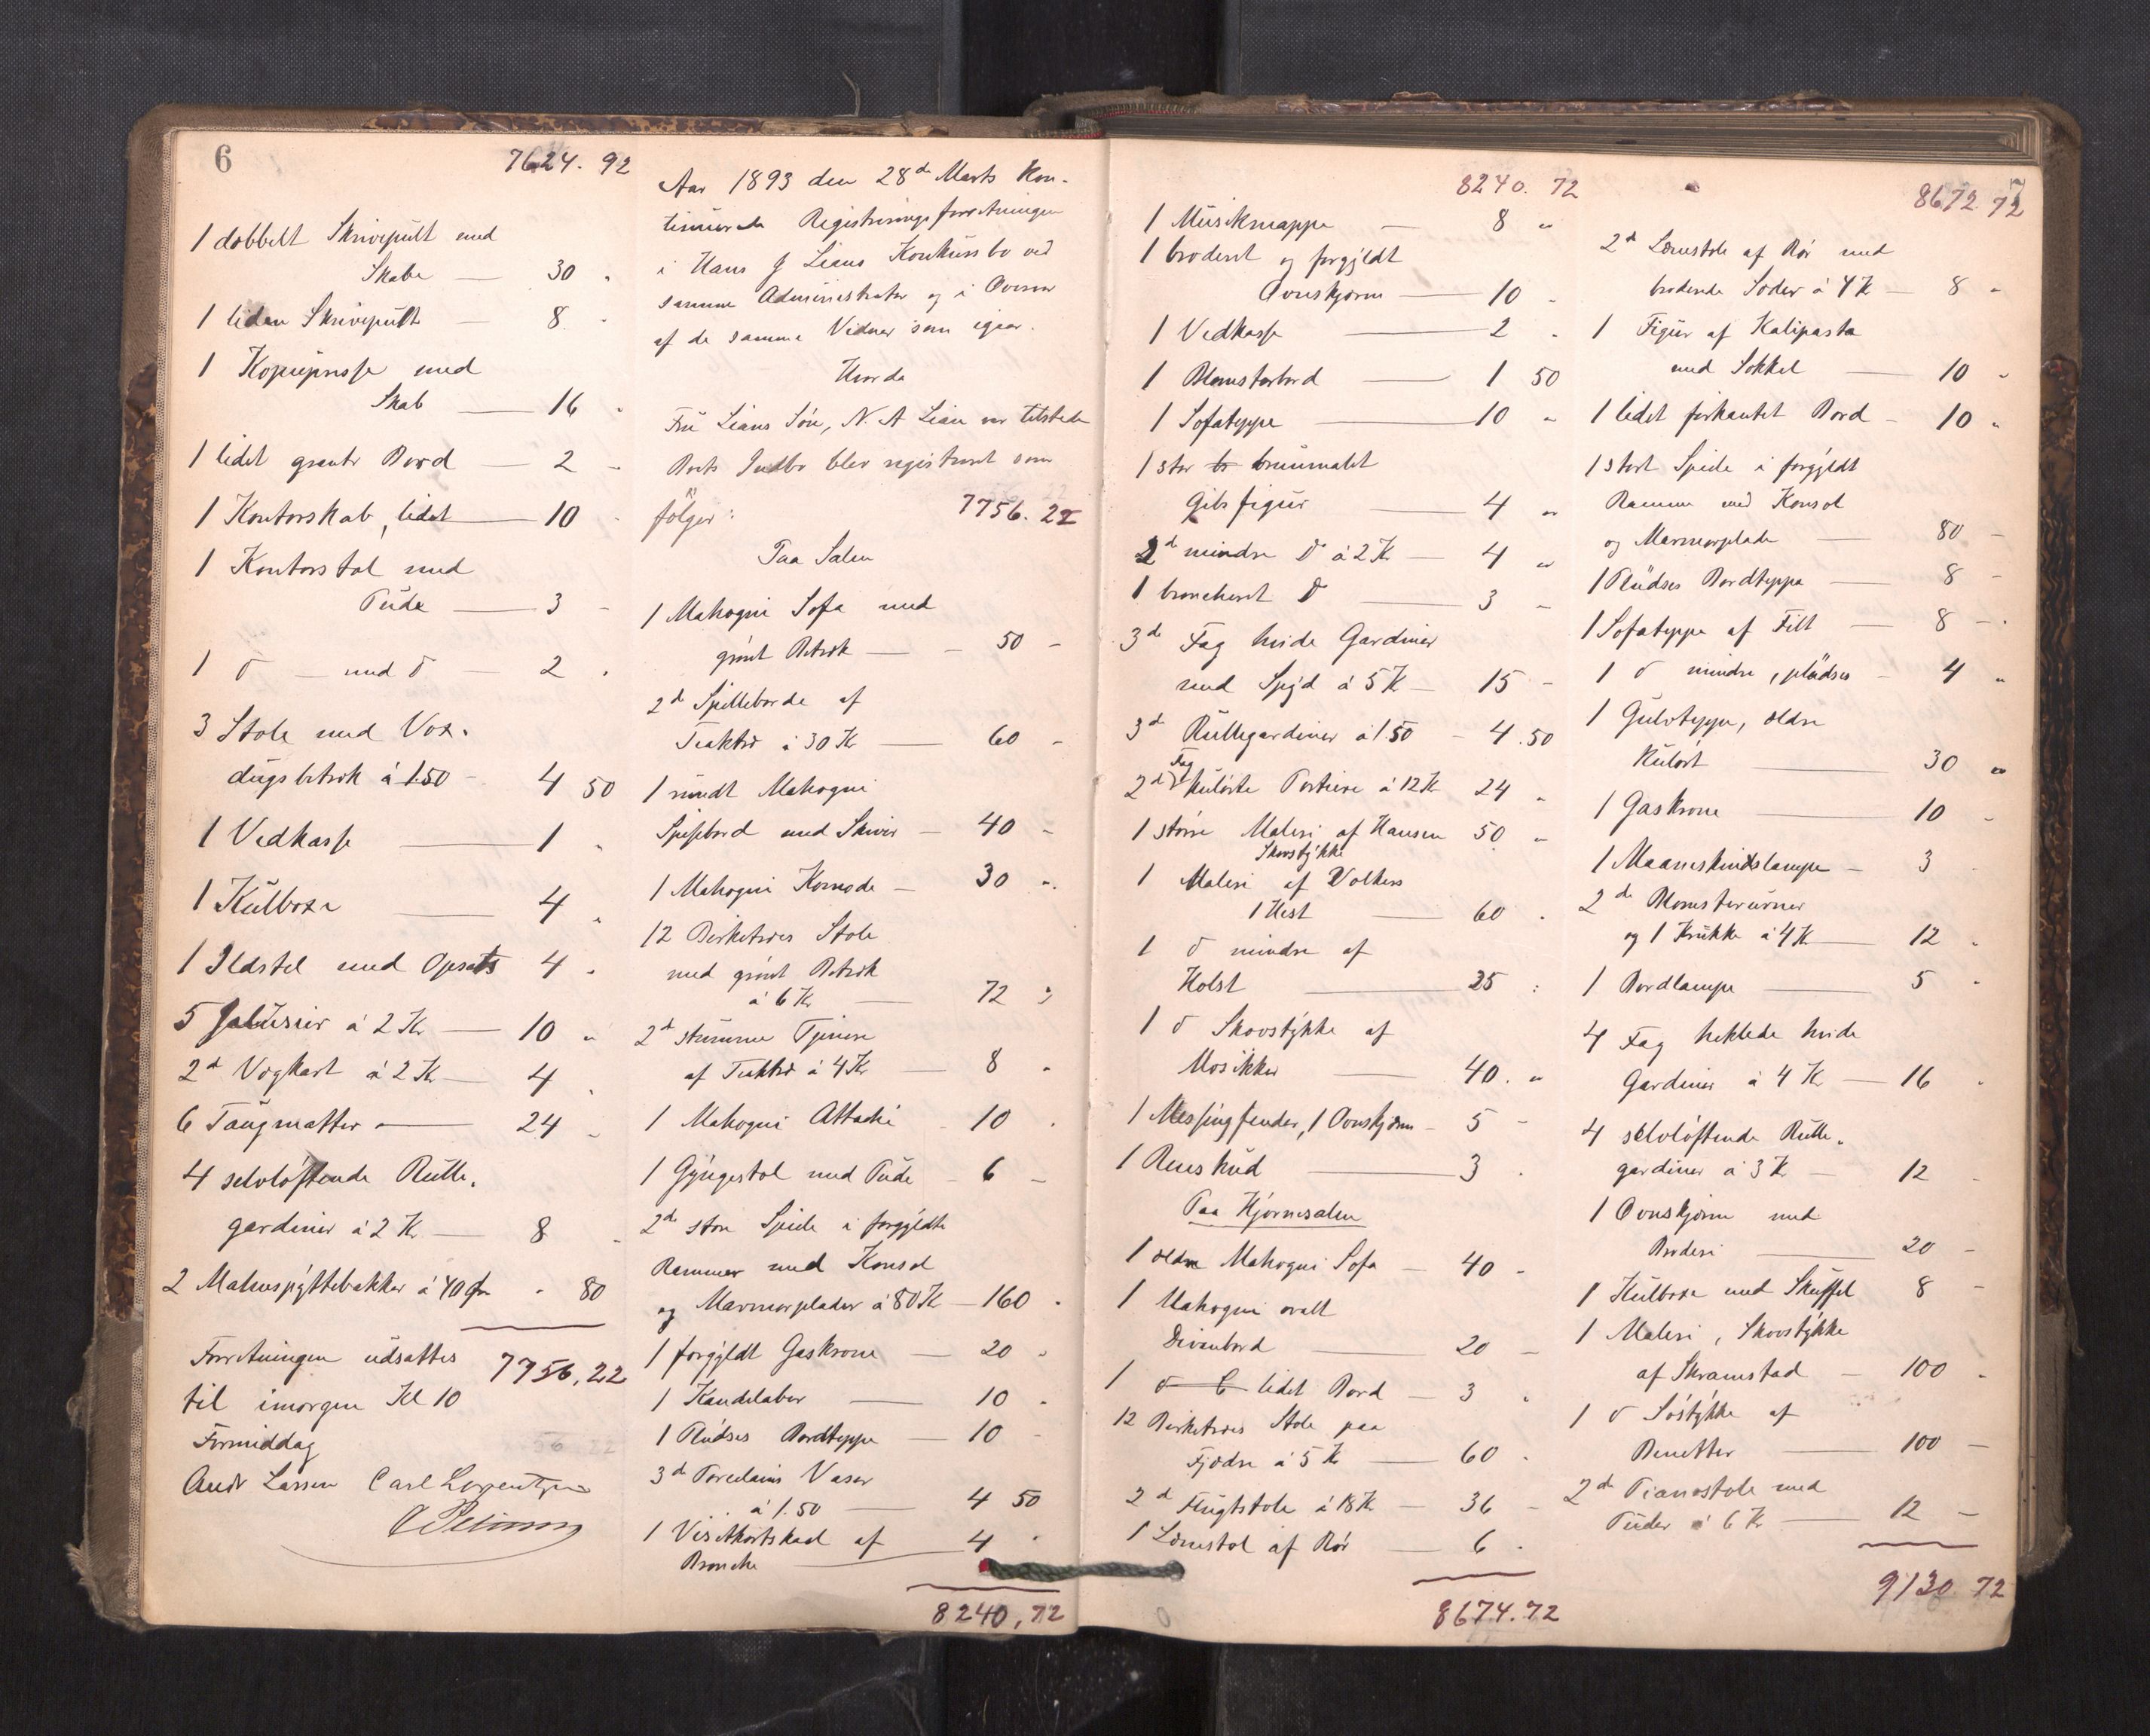 6
7624. 92
1 dobbelt Skrivepült med
Skabe — 30 "
1 liden Skrivepült — 8 "
1 Kopiipresse med
Skab — 16 "
1 lidet Bord — 2 "
1 Kontorskab, lidet — 10 "
1 Kontorstol med
Püde — 3 "
1 do — med do — 2 "
3 Stole med Vox-
dügsbetræk á 1.50 — 4 50
1 Vedkasse — 1 "
1 Külboxe — 4 "
1 Ildstel med Opsats 4 "
5 Jalüsier á 2 Kr — 10 "
2d Vægkart á 2 Kr — 4 "
6 Taugmatter — 24 "
4 selvløftende Rülle-
gardiner á 2 Kr — 8 "
2 Malmspyttebakker á 40 Øre " 80
Forretningen üdsattes 7756,22
til imorgen Kl 10
Formiddag
Andr Larsen Carl Lorentzen
Aar 1893 den 28de Marts kon-
tinüerede Registreringsforretningen
i Hans J Liens Konkürsbo ved
samme Administrator og i Overvær
af de samme Vidner som igaar.
Hvorda
Frü Liens Søn, N. A Lien var tilstede
Boets Indbo blev registreret som
følger: 7756. 22
Paa Salen
1 Mahogni Sofa med
grønt Betræk — 50 –
2d Spilleborde af
Teaktræ á 30 Kr — 60 –
1 ründt Mahogni
Spisebord med Skiver — 40 –
1 Mahogni Komode — 30 "
12 Birketræes Stole
med grønt Betræk
á 6 Kr — 72 "
2d stumme Tjenere
af Teaktræ á 4 Kr — 8 "
1 Mahogni Attaché 10 "
1 Gyngestol med Püde — 6 –
2de store Speile i forgyldte
Rammer med Konsol
og Marmorplader á 80 Kr — 160 "
1 forgyldt Gaskrone — 20 "
1 Kandelaber — 10 "
1 Plüdses Bordteppe — 10 –
3d Porcelains Vaser
á 1.50 — 4 50
1 Visitkortskaal af 4 "
Bronche
8240,72
7
8240. 72
1 Müsikmappe — 8 "
1 broderet og forgyldt
Ovnskjærm — 10 "
1 Vedkasse — 2 "
1 Blomsterbord — 1 50
1 Sofateppe — 10 "
1 stor br brünmalet
Gibsfigür — 4 "
2d mindre Do á 2 Kr — 4 "
1 broncheret Do 3 "
3d Fag hvide Gardiner
med Spyd á 5 Kr — 15 –
3d Rüllegardiner á 1.50 – 4.50
2d Fag külørte Portiere á 12 Kr 24 "
1 større Maleri af Hansen 50 "
Skovstykke
1 Maleri af Volkers
1 Hest — 60 "
1 do mindre af
Holst — 25 "
1 do Skovstykke af
— 40. "
1 Messingfender, 1 Ovnskjærm — 5 –
1 Renskind — 3 "
Paa Hjørnesalen
1 ældre Mahogni Sofa — 40 –
1 Mahogni ovalt
Divanbord — 20 –
1 do lidet Bord — 3 "
12 Birketræes Stole paa
Fjædre á 5 Kr — 60 "
2d Flugtstole á 18 Kr — 36 –
1 Lænestol af Rør — 6 "
8674.72
8672 72
2d Lænestole af Rør med
broderede Sæder á 4 Kr — 8 –
1 Figür af Kalipasta
med Sokkel — 10 –
1 lidet firkantet Bord — 10 "
1 stort Speile i forgyldt
Ramme med Konsol
og Marmorplade — 80 –
1 Plüdses Bordteppe — 8 –
1 Sofateppe af Filt — 8 –
1 do mindre, plüdses — 4 "
1 Gülvteppe, ældre
külørt — 30 "
1 Gaskrone — 10 –
1 Maaneskindslampe — 3
2de Blomsterurner
og 1 Krükke á 4 Kr — 12 "
1 Bordlampe — 5 "
4 Fag heklede hvide
Gardiner á 4 Kr — 16 "
4 selvløftende Rülle-
gardiner á 3 Kr — 12 –
1 Ovnskjærm med
Broderi — 20 –
1 Külboxe med Sküffel 8 –
1 Maleri, Skovstykke
af Skramstad — 100 "
1 do Søstykke af
Benetter — 100 –
2de Pianostole med
Püder á 6 Kr — 12 –
9130 72